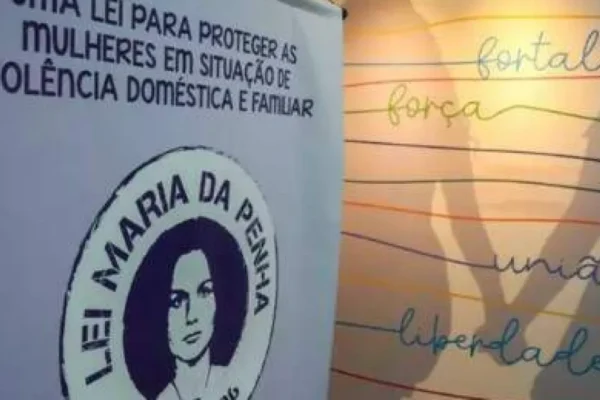 LEI PARA PROTEGER AS
MULHERES EM SITUAÇÃO DE
OLÊNCIA DOMÉSTICA E FAMILIAR
LEI MARIA DA PENHA
fortal
força
uniã
liberdade